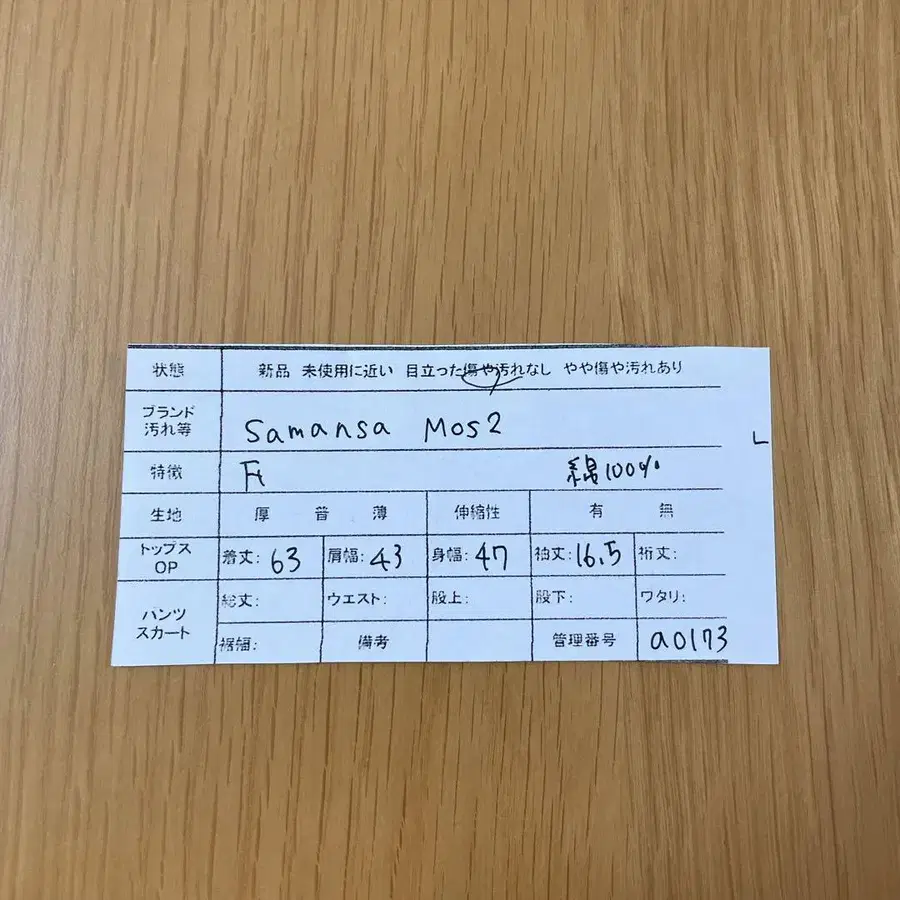 状態 新品 未使用に近い 目立った傷や汚れなし やや傷や汚れあり
ブランド
汚れ等
Samansa Mos2
特徴 綿100%
生地 厚 普 薄 伸縮性 有 無
トップス
OP
着丈: 63 肩幅: 43 身幅: 47 袖丈: 16.5 裄丈:
パンツ
スカート
総丈: ウエスト: 股上: 股下: ワタリ:
裾幅: 備考 管理番号 a0173